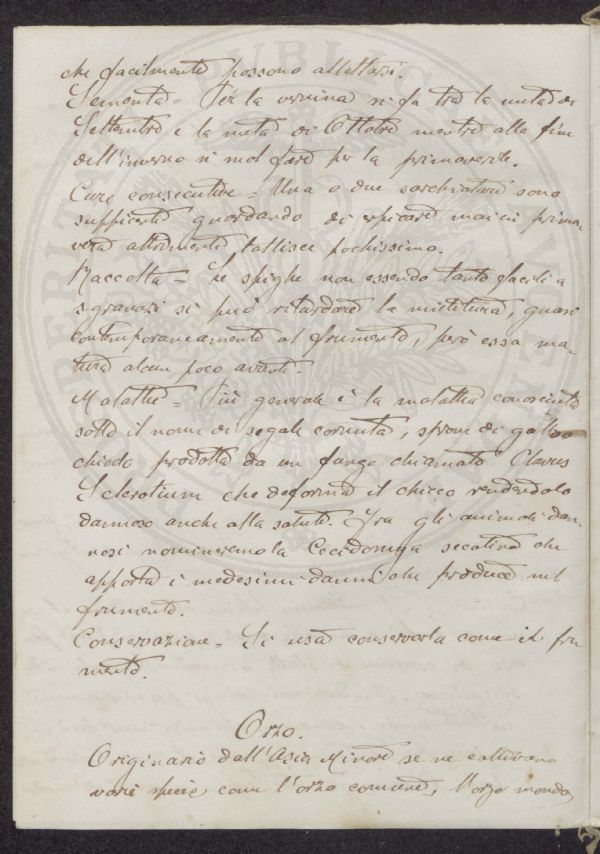 che facilmente possono allettarsi.
Sementa = Per la vernina si fa tra la metà di
Settembre e la metà di Ottobre mentre alla fine
dell'inverno si suol fare per la primaverile.
Cure consecutive = Una o due sarchiature sono
sufficienti guardando di spicare mai in prima-
vera altrimenti tallisce pochissimo.
Raccolta = Le spighe non essendo tanto facili a
sgranarsi si può ritardare la mietitura, quasi
contemporaneamente al frumento, però essa ma-
tura alcun poco avanti.
Malattie = Più generale è la malattia conosciuta
sotto il nome di segale cornuta, sprone di gallo
chiodo prodotta da un fungo chiamato Clavus
Sclerotium che deforma il chicco rendendolo
dannoso anche alla salute. Fra gli animali dan-
nosi nomineremo la Cecidomya secalina che
apporta i medesimi danni che produce nel
frumento.
Conservazione = Si usa conservarla come il fru
mento.
Orzo.
Originario dall'Asia Minore se ne coltivano
varie specie, come l'orzo comune, l'orzo mondo,
PUBLIC